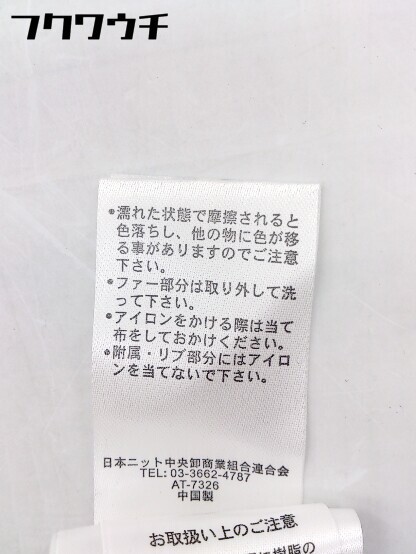 フクワウチ
•濡れた状態で摩擦されると
色落ちし、他の物に色が移
る事がありますのでご注意
下さい。
•ファー部分は取り外して洗
って下さい。
•アイロンをかける際は当て
布をしておかけください。
•附属・リブ部分にはアイロ
ンを当てないで下さい。
日本ニット中央卸商業組合連合会
TEL: 03-3662-4787
AT-7326
中国製
お取扱い上のご注意
樹脂の